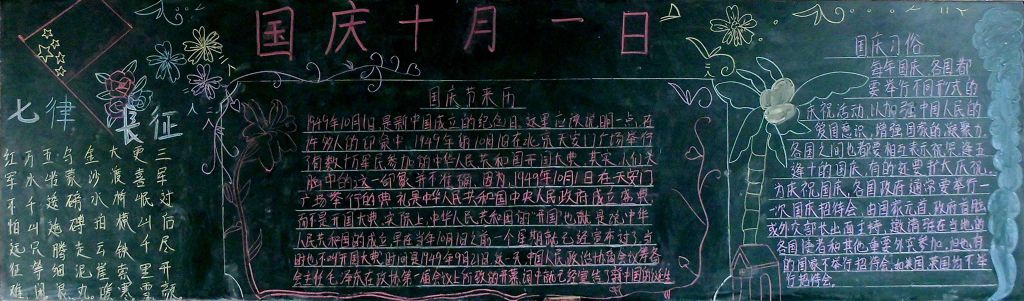 国庆十月一日
七律 长征
红军不怕远征难
万水千山只等闲
五岭逶迤腾细浪
乌蒙磅礴走泥丸
金沙水拍云崖暖
大渡桥横铁索寒
更喜岷山千里雪
三军过后尽开颜
国庆节来历
1949年10月1日是新中国成立的纪念日。这里应该说明一点,在
许多人的印象中,1949年的10月1日在北京天安门广场举行
有数十万军民参加的中华人民共和国开国大典。其实,人们头
脑中的这一印象并不准确。因为,1949年10月1日在天安门
广场举行的典礼是中华人民共和国中央人民政府成立盛典,
而不是开国大典。实际上,中华人民共和国的"开国"也就是说,中华
人民共和国的成立,早在当年10月1日之前一个星期就已经宣布过了。当
时也不叫开国大典,时间是1949年9月21日。这一天,中国人民政治协商会议筹备会
主任毛泽东在政协第一届会议上所致的开幕词中就已经宣告了新中国的诞生
国庆习俗
每年国庆,各国都
要举行不同形式的
庆祝活动,以加强中国人民的
爱国意识,增强国家的凝聚力。
各国之间也都要相互表示祝贺。逢五
逢十的国庆,有的还要扩大庆祝。
为庆祝国庆,各国政府通常要举行一
次国庆招待会,由国家元首、政府首脑
或外交部长出面主持,邀请驻在当地的
各国使者和其他重要外宾参加。但也有
的国家不举行招待会,如美国、英国均不举
行招待会。